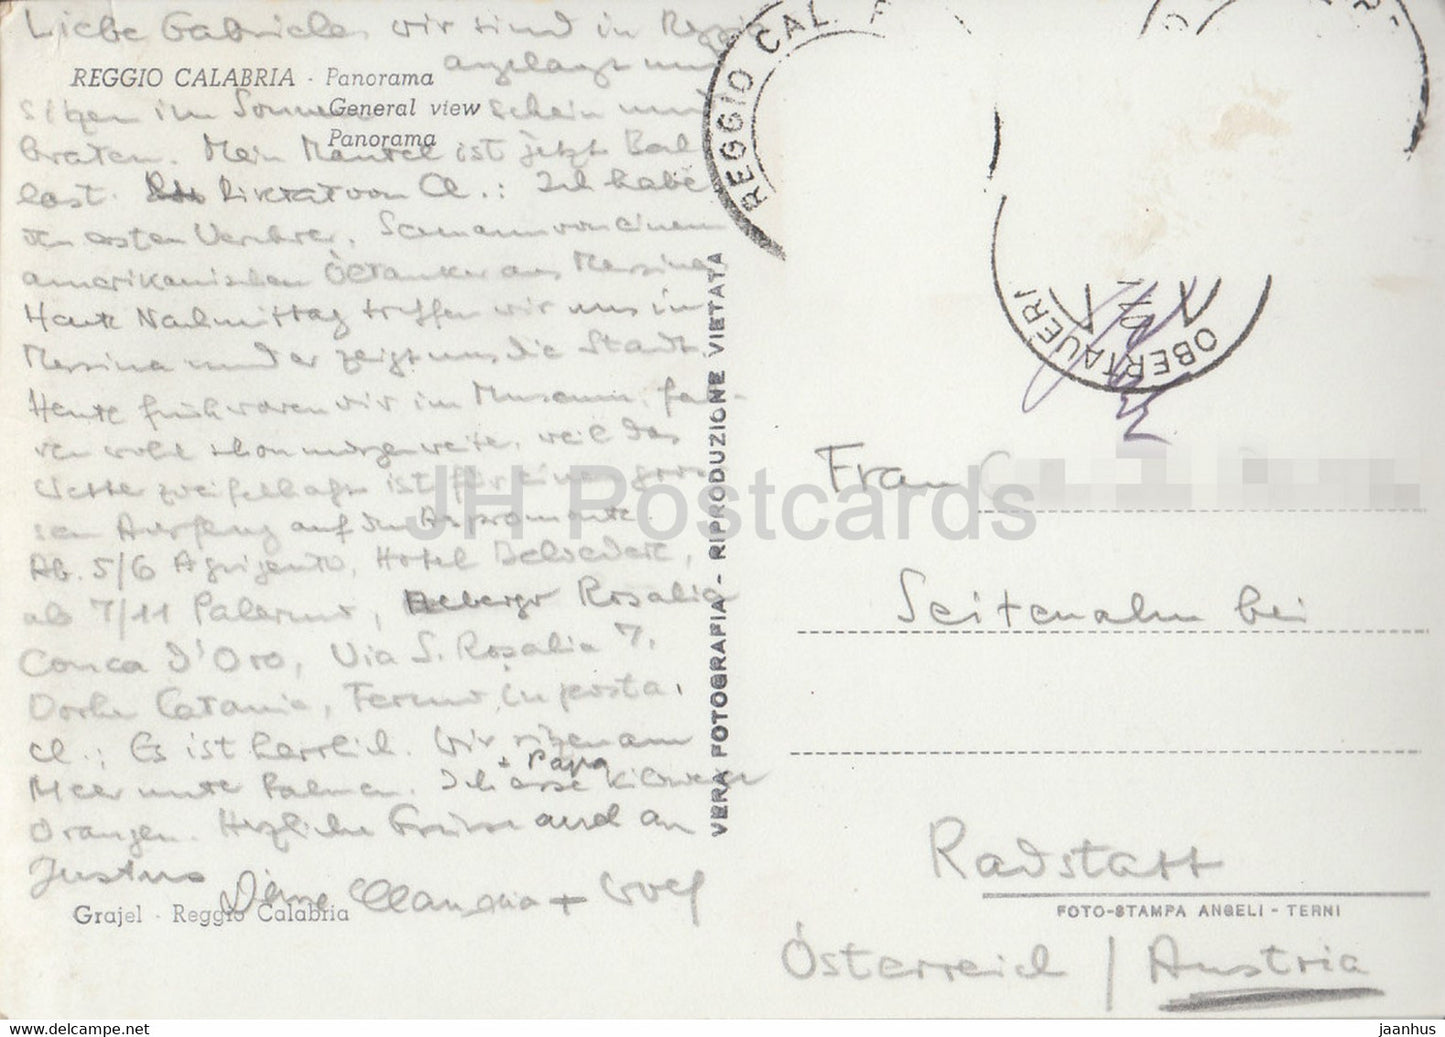 Liebe Gabriele, wir sind in Reggio
angelangt und
REGGIO CALABRIA - Panorama
General view
Panorama
sitzen im Sonnenschein und
braten. Mein Mantel ist jetzt Bal-
last. Diktat von Cl.: Ich habe
den ersten Verehrer, Seemann von einem
amerikanischen Öltanker aus Messina.
Heute Nachmittag treffen wir uns in
Messina und er zeigt uns die Stadt.
Heute früh waren wir im Museum, fah-
ren wohl schon morgen weiter, weil das
Wetter zweifelhaft ist für einen gros-
sen Ausflug auf den Aspromonte.
Ab. 5/6 Agrigento, Hotel Belvedere,
ab 7/11 Palermo, Albergo Rosalia
Conca d'Oro, Via S. Rosalia 7.
Catania, Fermo in posta.
Cl.: Es ist herrlich. Wir sitzen am
Meer unter Palmen. Ich + Papa esse kiloweise
Orangen. Herzliche Grüsse auch an
Justus Deine Claudia + Wolf
Grajel - Reggio Calabria
VERA FOTOGRAFIA - RIPRODUZIONE VIETATA
REGGIO CAL
OBERTAUERN
Frau
Seitenalm bei
Radstatt
FOTO-STAMPA ANGELI - TERNI
Österreich / Austria
JH Postcards
www.delcampe.net
jaanhus